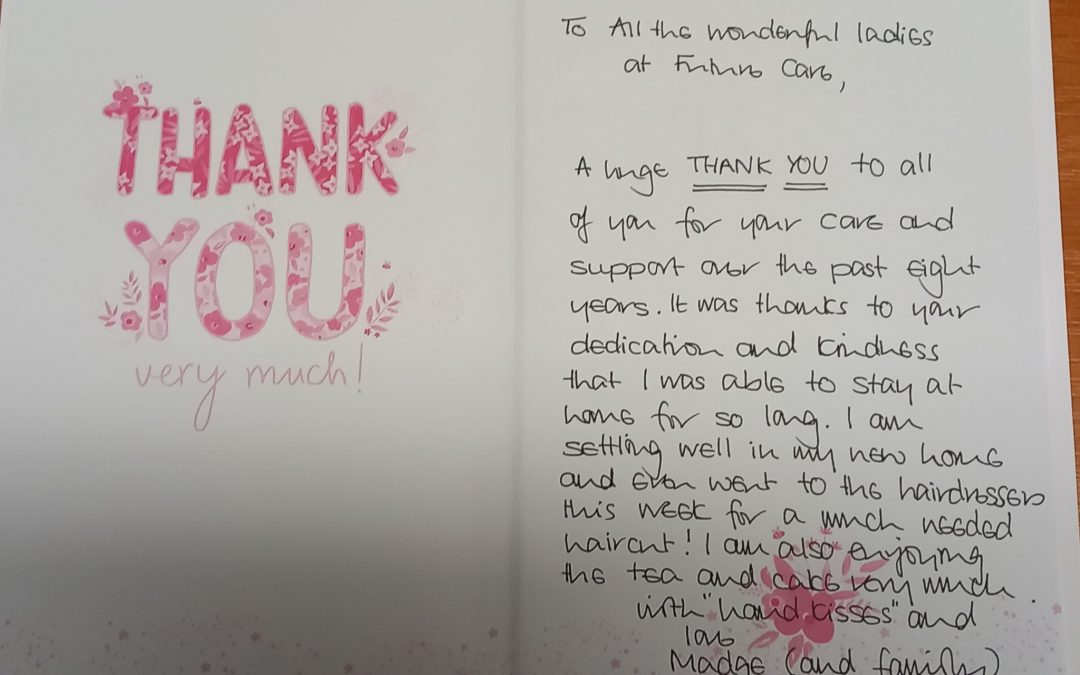 THANK
YOU
very much!
To All the wonderful ladies
at Future Care,
A huge THANK YOU to all
of you for your care and
support over the past eight
years. It was thanks to your
dedication and kindness
that I was able to stay at
home for so long. I am
settling well in my new home
and even went to the hairdressers
this week for a much needed
haircut! I am also enjoying
the tea and cake very much.
with "hand kisses" and
love
Madge (and family)